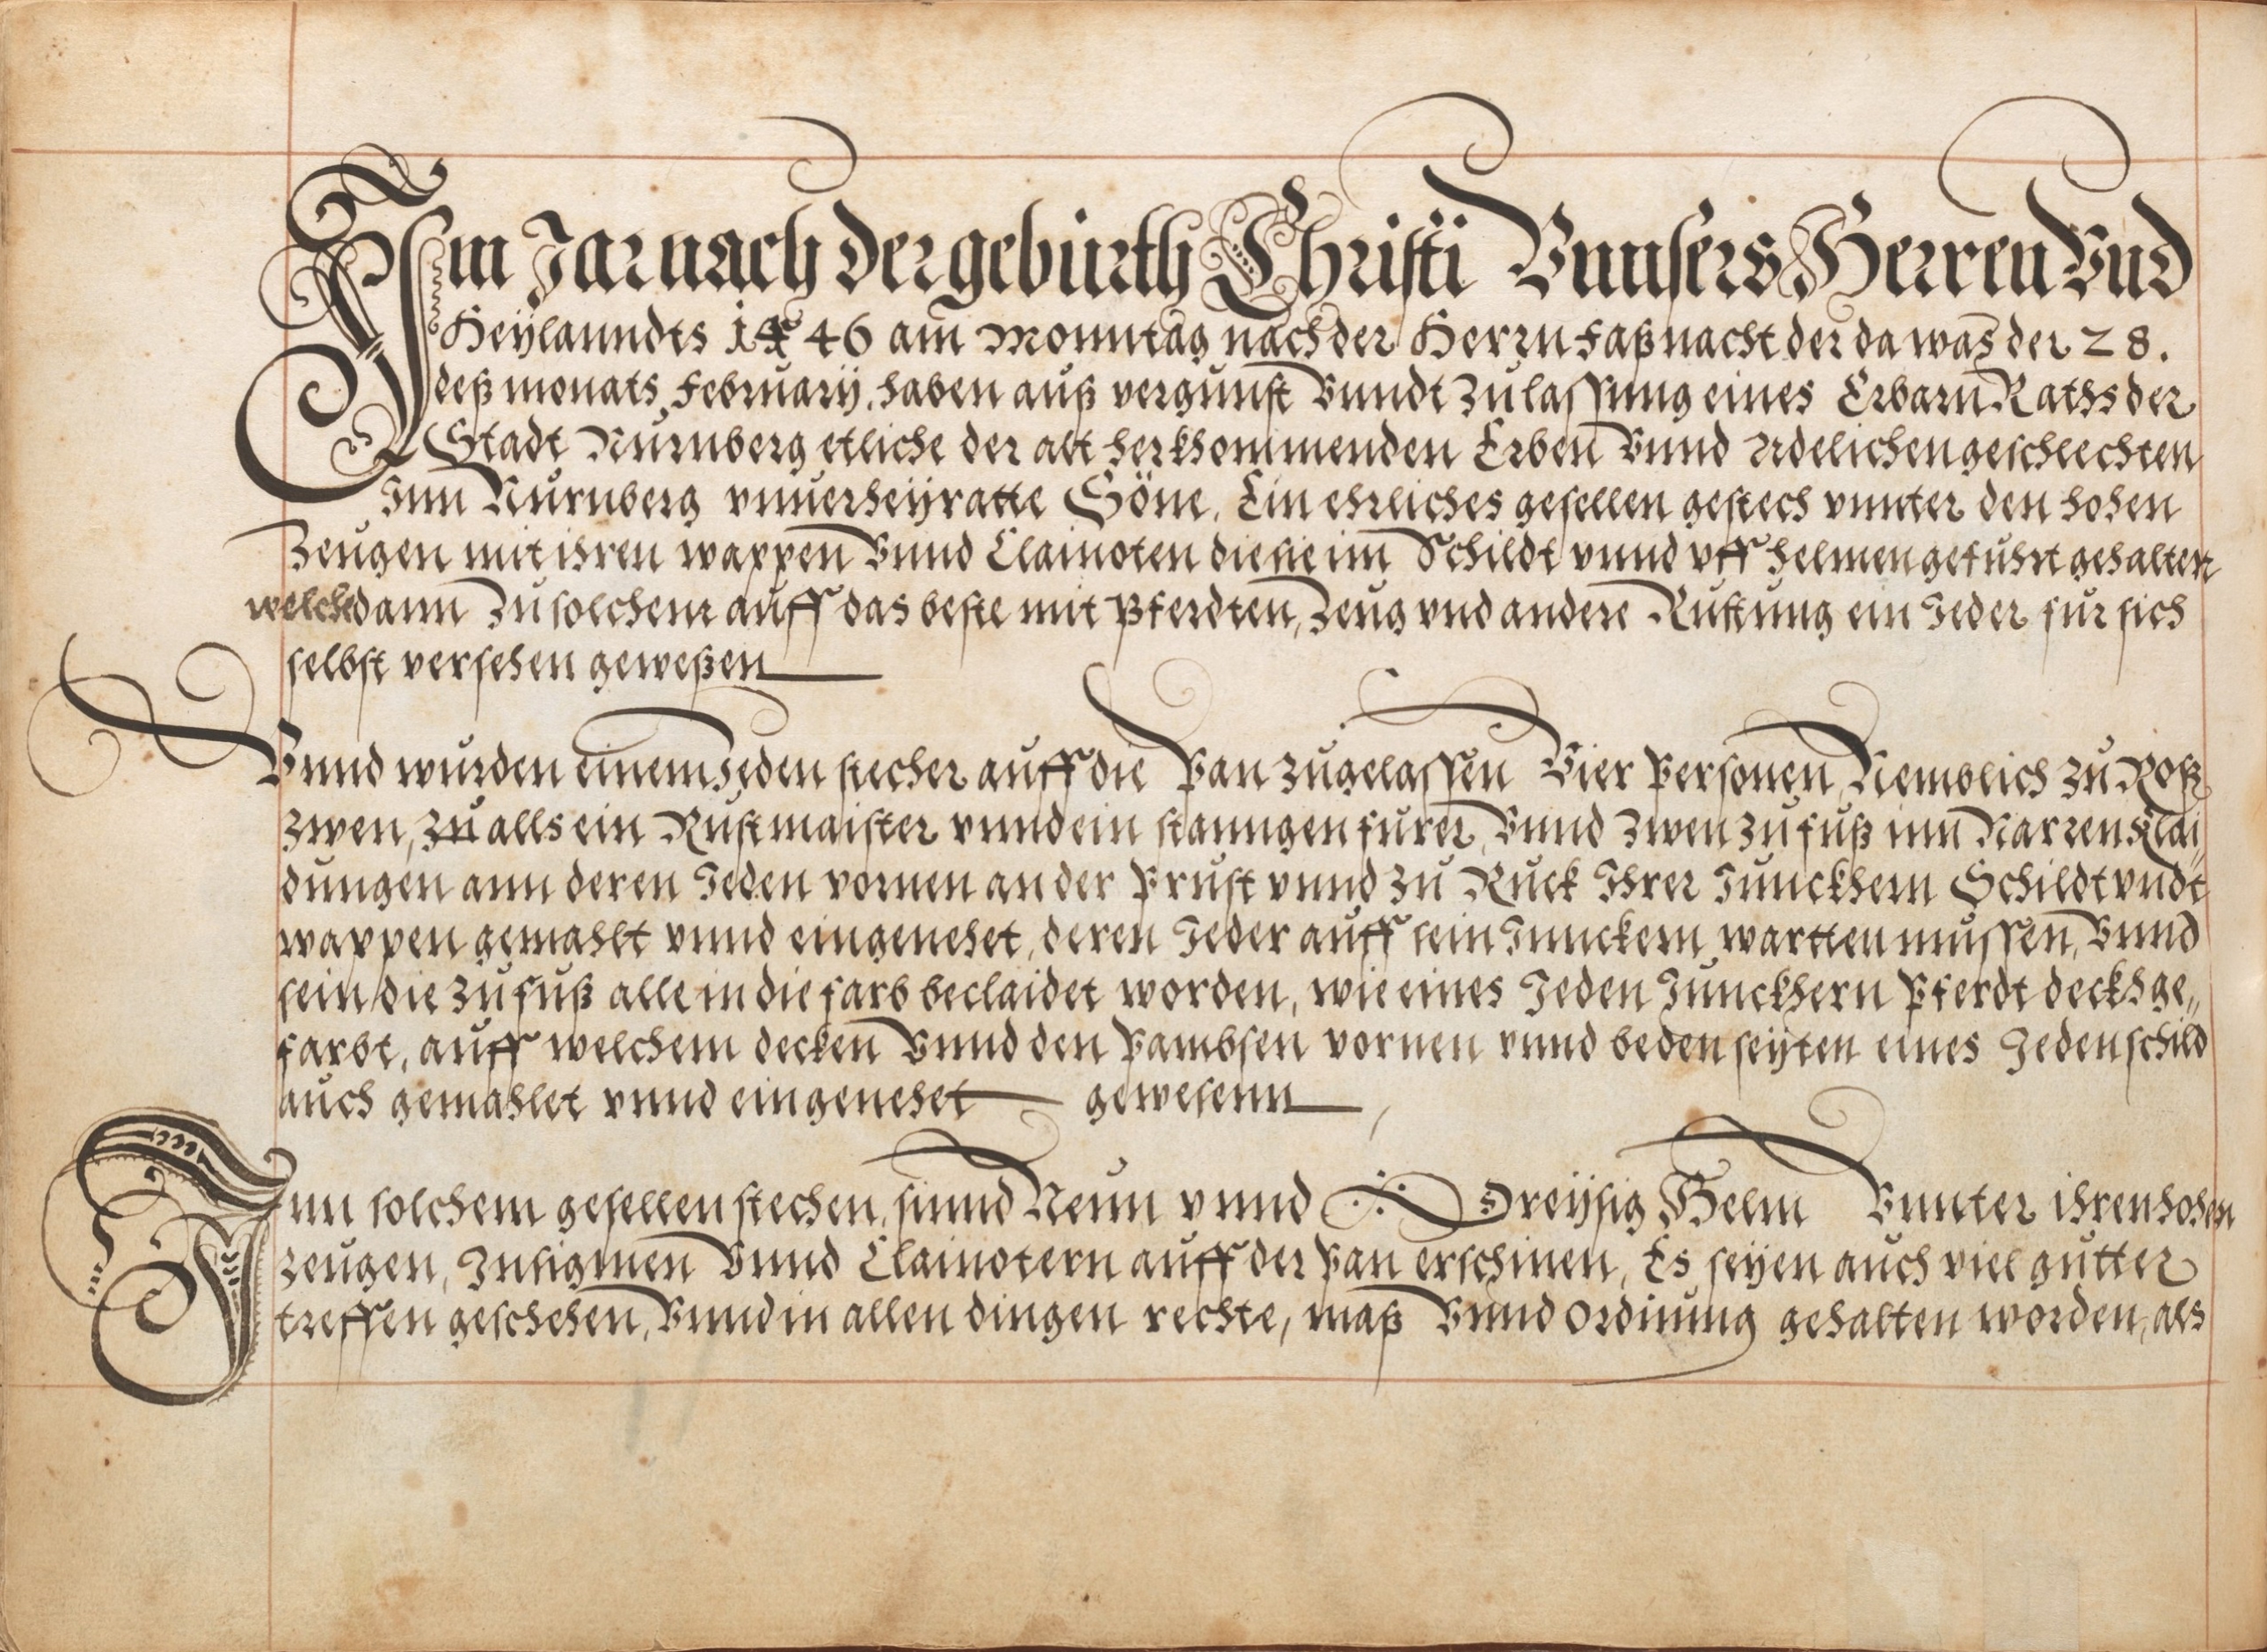 Im Jar nach der gebürth Christi Vnnsers Herren Vnd
Heÿlanndts 1446 am Monntag nach der Herrn Faßnacht der da was der 28.
deß monats Februarÿ. haben auß vergunst Vnndt Zulassung eines Erbarn Raths der
Stadt Nürnberg etliche der alt herkhommenden Erben Vnnd Adelichen geschlechten
Inn Nürnberg vnuerheÿratte Söne, Ein ehrliches gesellen gestech vnnter den hohen
Zeugen mit ihren wappen Vnnd Clainoten die sie im Schildt vnnd vff helmen gefuhrt gehalten
welche dann Zu solchem auff das beste mit Pferdten, Zeug vnd andere Rustung ein Jeder fur sich
selbst versehen geweßen
Vnnd wurden einem Jeden stecher auff die Pan zugelassen Vier Personen, Nemblich zu Roß
zwen, zu alls ein Rustmaister vnnd ein stanngen furer, Vnnd zwen zu fuß inn Narren Klai„
dungen ann deren Jeden vornen an der Prust vnnd zu Ruck Ihrer Junckhern Schildt vndt
wappen gemahlt vnnd eingenehet, deren Jeder auff sein Junckern wartten mussen, Vnnd
sein die zu fuß alle in die farb beclaidet worden, wie eines Jeden Junckhern Pferdt deckh ge„
farbt, auff welchem decken Vnnd den Pambsen vornen vnnd beden seÿten eines Jeden schild
auch gemahlet vnnd eingenehet gewesenn
Inn solchem gesellen stechen, sinnd Neun vnnd Dreÿsig Helm Vnnter ihren hohen
zeugen, Insignien Vnnd Clainotern auff der Pan erschinen, Es seÿen auch viel gutter
treffen geschehen, Vnnd in allen dingen rechte, maß Vnnd Ordnung gehalten worden, als